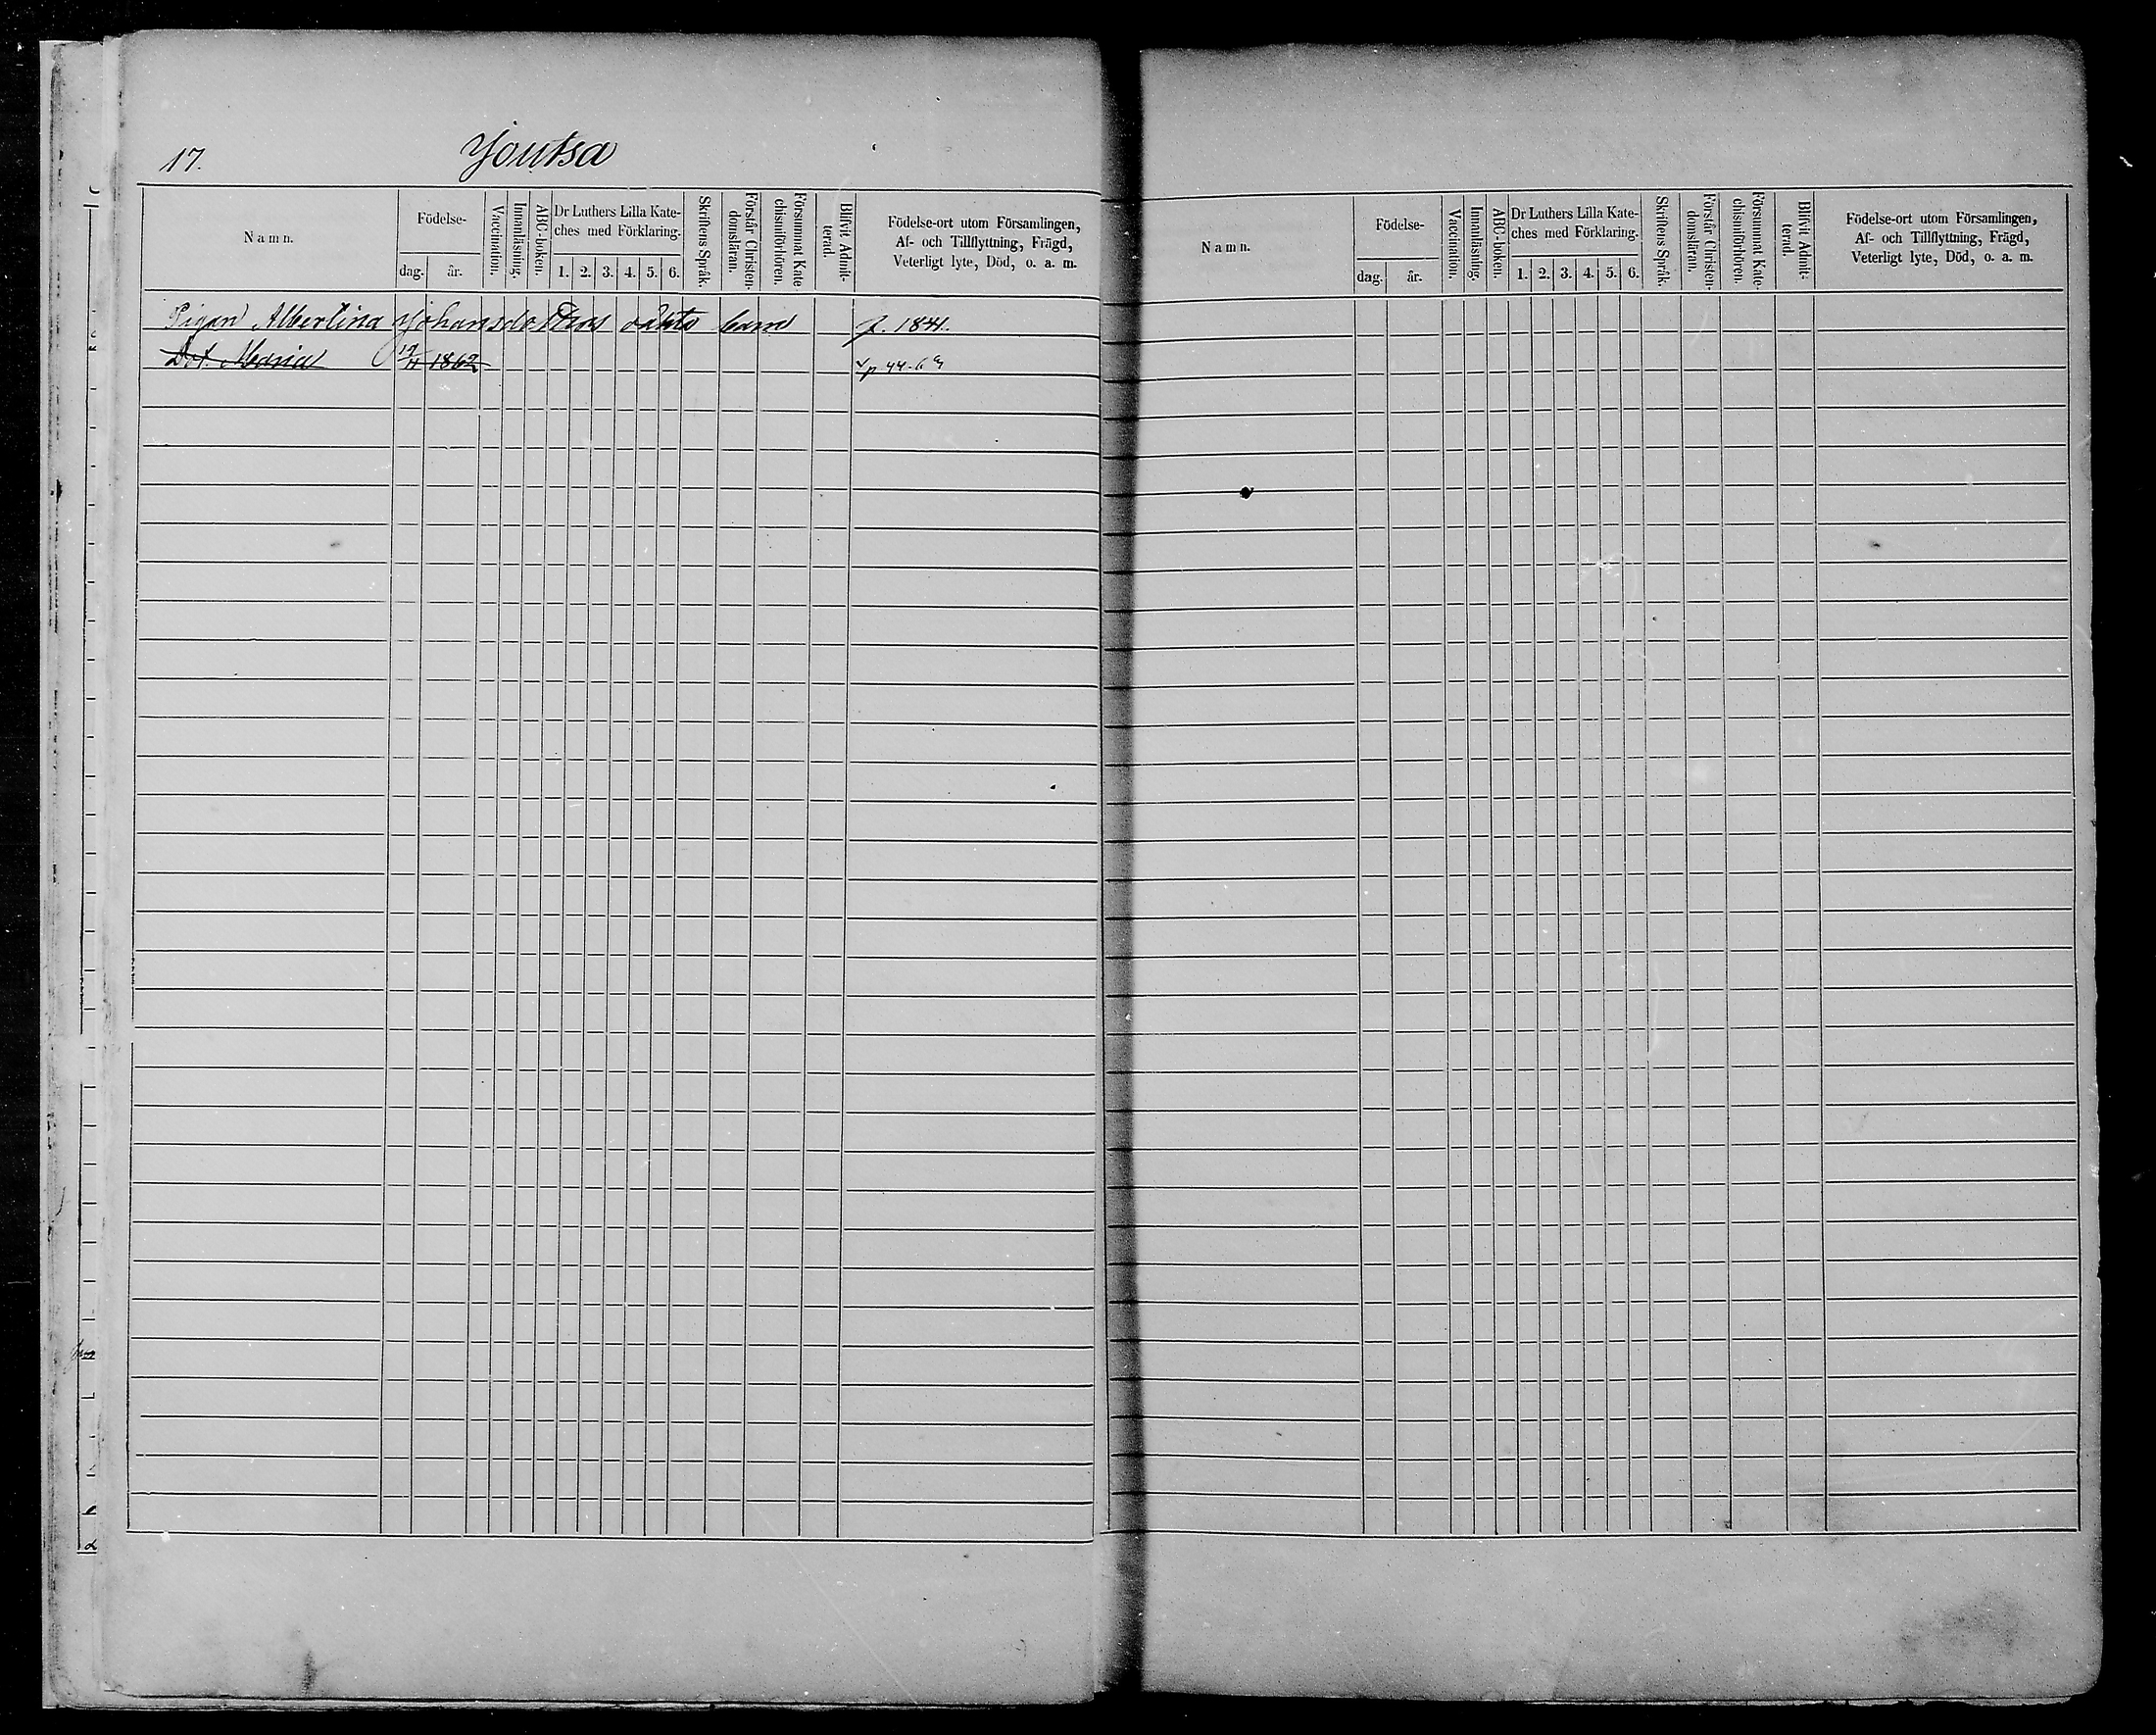 17.
Joutsa
Namn.
Födelse-
dag.
år.
Vaccination.
Innanläsning.
ABC-boken.
Dr Luthers Lilla Kate-
ches med Förklaring.
1. 2. 3. 4. 5. 6.
Skriftens Språk.
Förstår Christen-
domsläran.
Försummat Kate-
chismiförhören.
Blifvit Admit-
terad.
Födelse-ort utom Församlingen,
Af- och Tillflyttning, Frägd,
Veterligt lyte, Död, o. a. m.
Pigan Albertina Johansdotters oäkta barn f. 1841.
Dot. Maria 1862
Namn.
Födelse-
dag.
år.
Vaccination.
Innanläsning.
ABC-boken.
Dr Luthers Lilla Kate-
ches med Förklaring.
1. 2. 3. 4. 5. 6.
Skriftens Språk.
Förstår Christen-
domsläran.
Försummat Kate-
chismiförhören.
Blifvit Admit-
terad.
Födelse-ort utom Församlingen,
Af- och Tillflyttning, Frägd,
Veterligt lyte, Död, o. a. m.